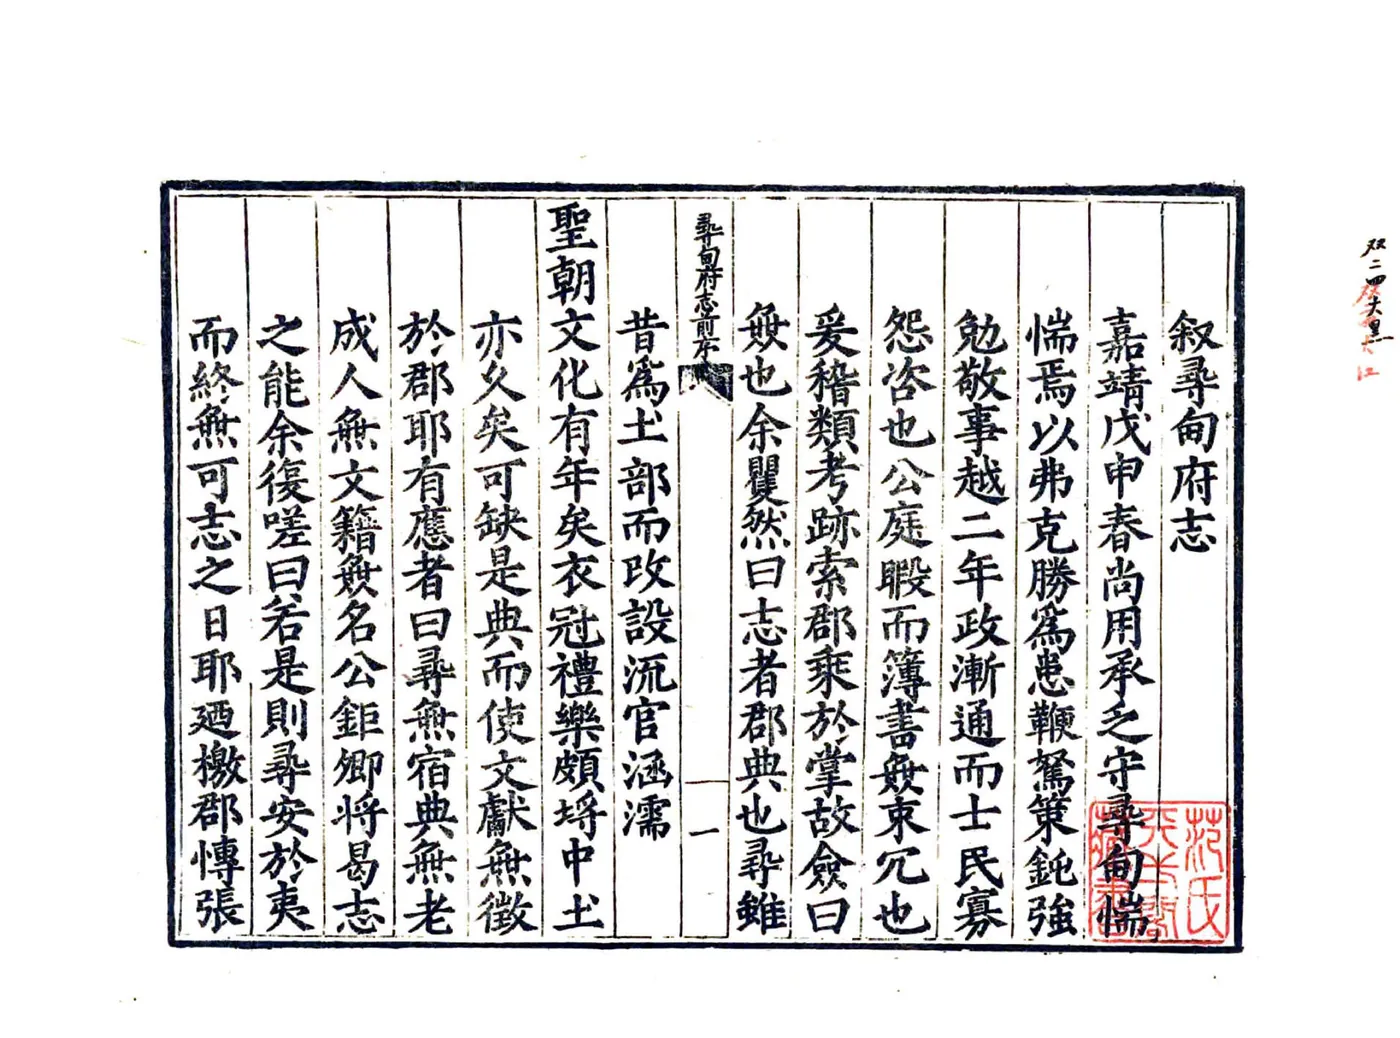 叙尋甸府志
嘉靖戊申春尚用承乏守尋甸惴
惴焉以弗克勝爲患鞭駑策鈍強
勉敬事越二年政漸通而士民寡
怨咨也公庭暇而簿書無束冗也
爰稽類考跡索郡乘於掌故僉曰
無也余瞿然曰志者郡典也尋雖
尋甸府志前序
一
昔爲土部而改設流官涵濡
聖朝文化有年矣衣冠禮樂頗埒中土
亦久矣可缺是典而使文獻無徵
於郡耶有應者曰尋無宿典無老
成人無文籍無名公鉅卿将曷志
之能余復嗟曰若是則尋安於夷
而終無可志之日耶廼檄郡博張
范氏天一閣藏書
双二四大黑